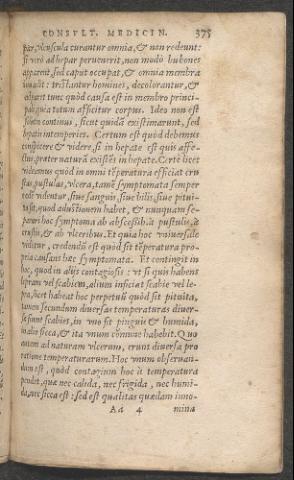 CONSVLT. MEDICIN. 375
par, vlcuscula curantur omnia, & non redeunt:
si verò ad hepar peruenerit, non modò bubones
apparent, sed caput occupat, & omnia membra
homines, decolorantur, &
quòd causa est in membro princi-
tota afficitur corpus. Ideo non est
continui, sicut quidã existimarunt, sed
hepatis intemperies. Certum est quòd debemus
conspicere & videre, si in hepate est quis affe-
ctus, præter naturã existẽs in hepate. Certè licet
videamus quòd in omni tẽperatura efficiat cru
stas, pustulas, vlcera, tamẽ symptomata semper
videntur, siue sanguis, siue bilis, siue pitui-
ta sit, quod adustionem habet, & nunquam se-
hoc symptoma ab abscessib. à pustulis, à
crustis, & ab vlceribus. Et quia hoc vniuersale
videtur, credendũ est quòd sit tẽperatura pro-
pria causans hæc symptomata. Et contingit in
hoc, quod in alijs contagiosis: vt si quis habens
lepram vel scabiem, alium inficiat scabie vel le-
pra, licet habeat hoc perpetuũ quòd sit pituita,
tamen secundum diuersas temperaturas diuer-
sæ fiunt scabies, in vno fit pinguis & humida,
in alio sicca, & ita vnum cõmune habebit. Quo
autem ad naturam vlcerum, erunt diuersa pro
ratione temperaturarum. Hoc vnum obseruan-
dum est, quòd contagium hoc à temperatura
pendet, quæ nec calida, nec frigida, nec humi-
da, nec sicca est: sed est qualitas quædam inno-
Aa 4 mina